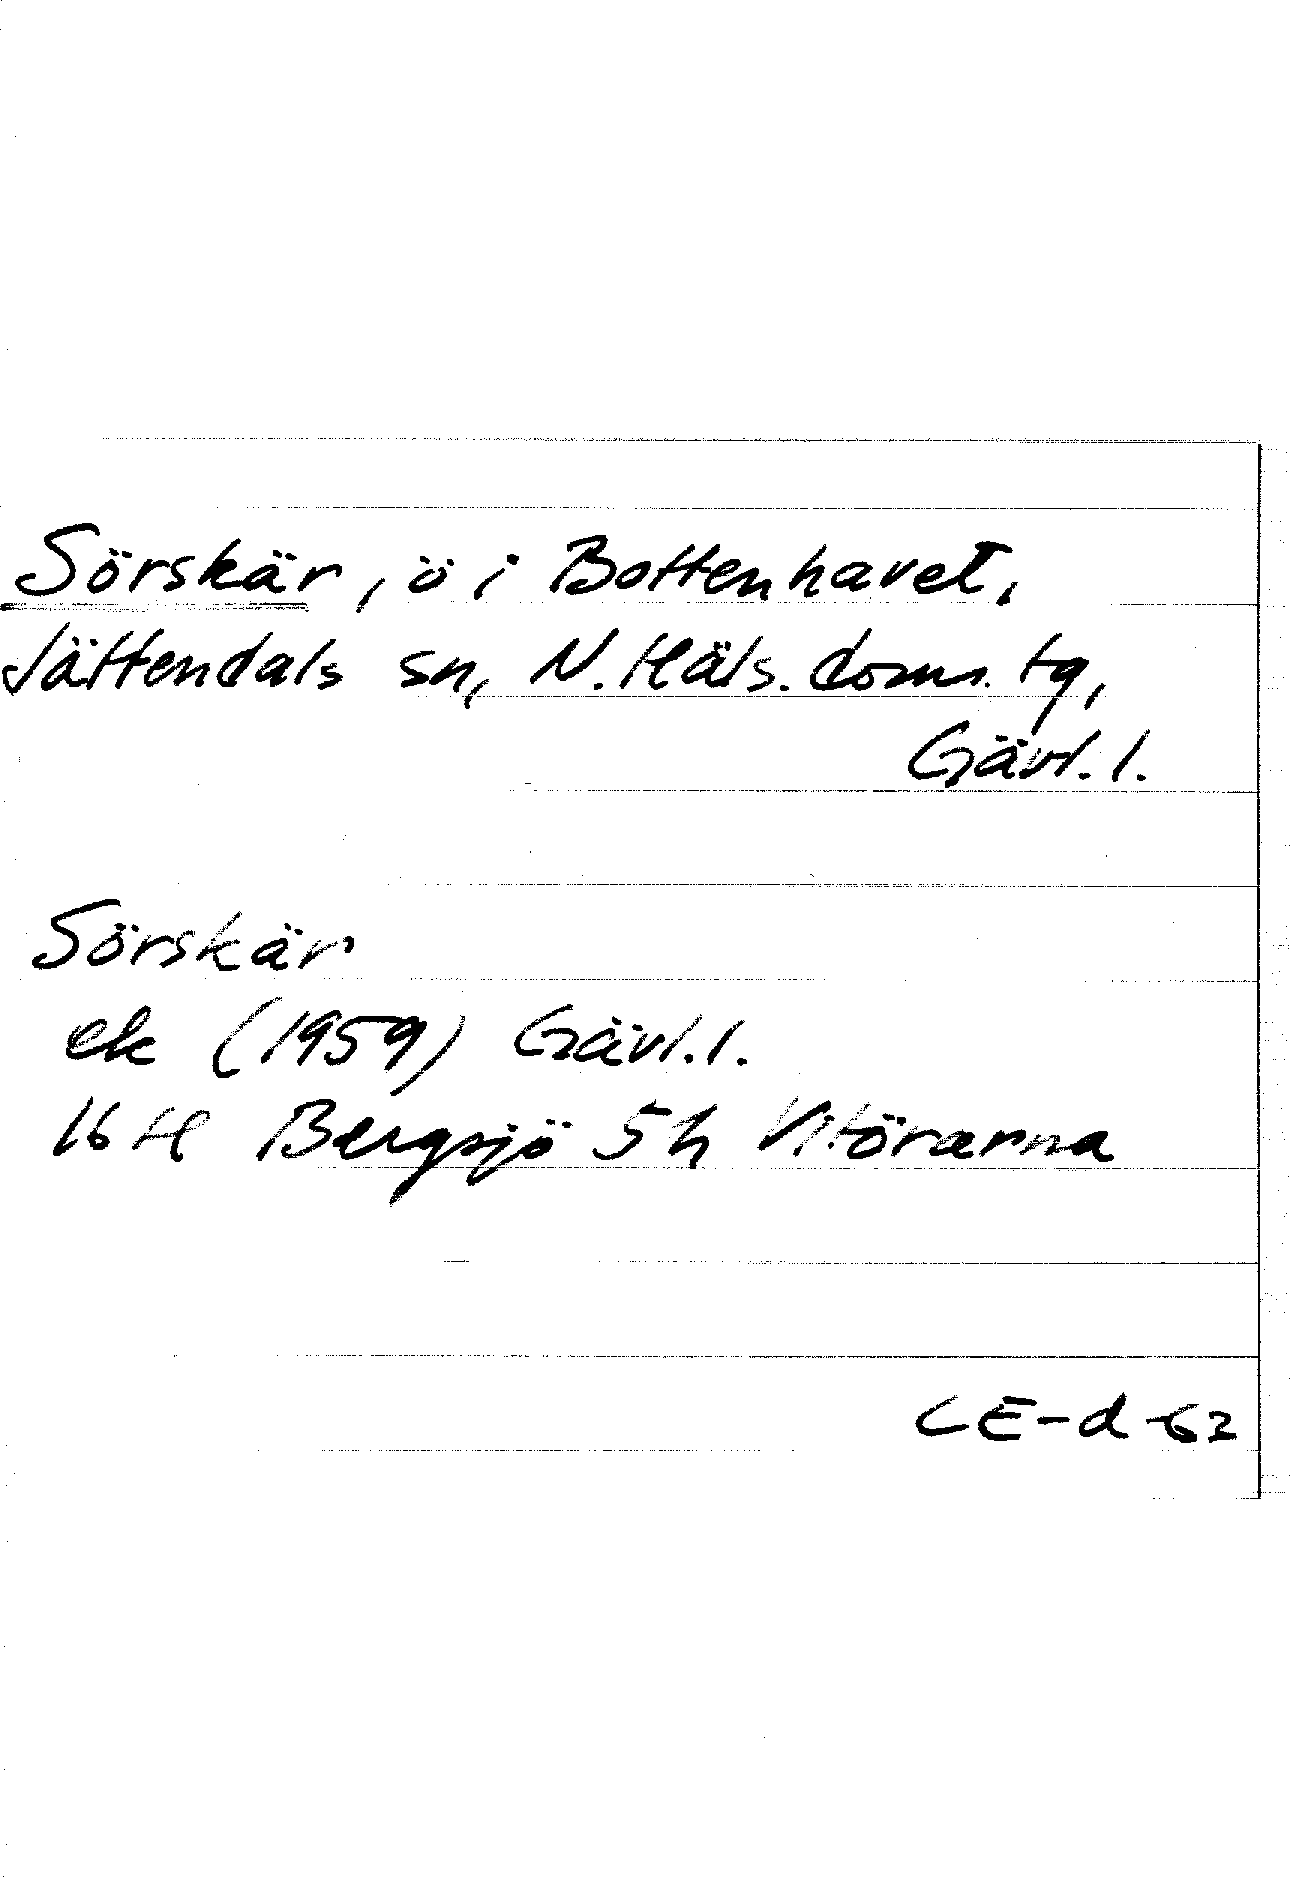 Sörskär, ö i Bottenhavet,
Jättendals sn, N. Häls. doms. tg,
Gävl. l.
Sörskär
ek (1959) Gävl. l.
16 H Bergsjö 5h Vitörarna
CE-d-62